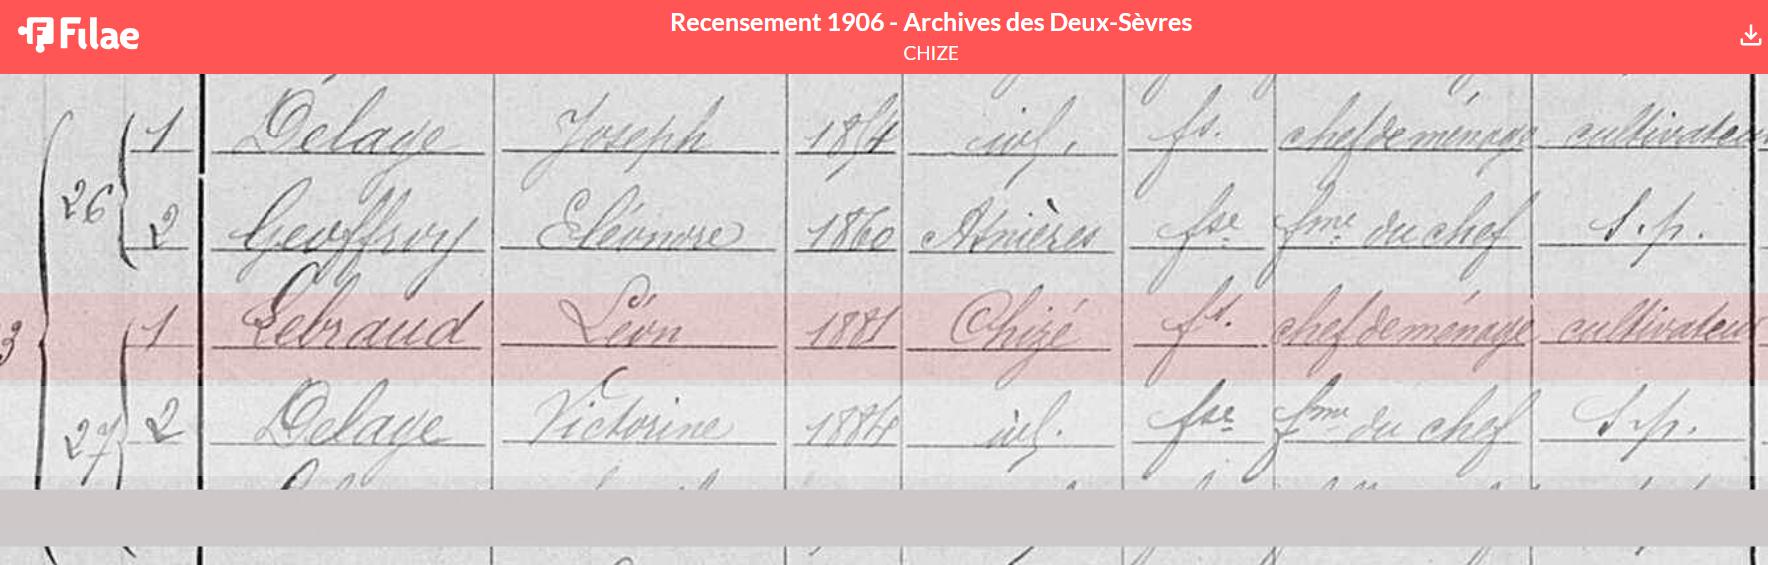 Filae
Recensement 1906 - Archives des Deux-Sèvres
CHIZE
1 Delage Joseph 1854 id. fs. chef de ménage cultivateur
26
2 Geoffroy Eléonore 1860 Asnières fse fme du chef S.p.
3 1 Lebraud Léon 1881 Chizé fs. chef de ménage cultivateur
27 2 Delage Victorine 1884 id. fse fme du chef S.p.